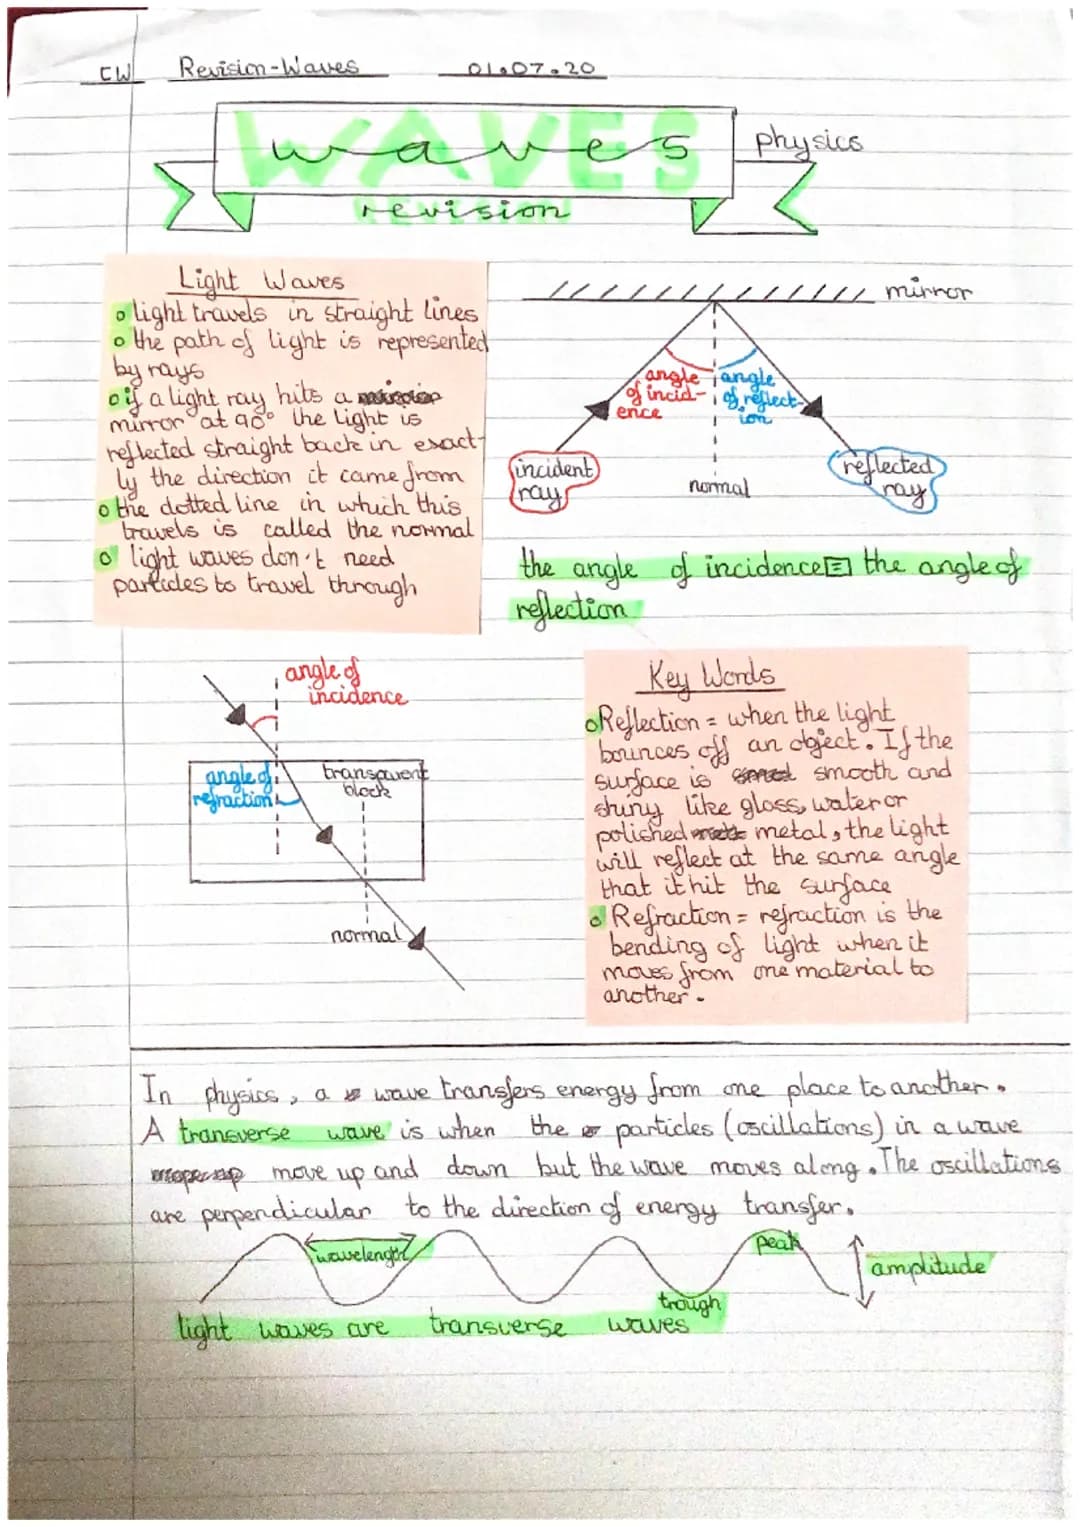 CW Revision-Waves 01.07.20
WAVES
waves
physics
revision
Light Waves
o light travels in straight lines
o the path of light is represented
by rays
o if a light ray hits a
mirror at 90° the light is
reflected straight back in exact-
ly the direction it came from
o the dotted line in which this
travels is called the normal
o light waves don't need
particles to travel through
mirror
angle
of incid-
ence
angle
of reflect-
ion
incident
ray
normal
reflected
ray
the angle of incidence = the angle of
reflection
angle of
incidence
angle of
refraction
transparent
block
normal
Key Words
o Reflection = when the light
bounces off an object. If the
surface is smooth and
shiny like gloss, water or
polished metal, the light
will reflect at the same angle
that it hit the surface
o Refraction = refraction is the
bending of light when it
moves from one material to
another.
In physics, a wave transfers energy from one place to another.
A transverse wave is when the particles (oscillations) in a wave
move up and down but the wave moves along. The oscillations
are perpendicular to the direction of energy transfer.
wavelength
peak
amplitude
trough
light waves are transverse waves